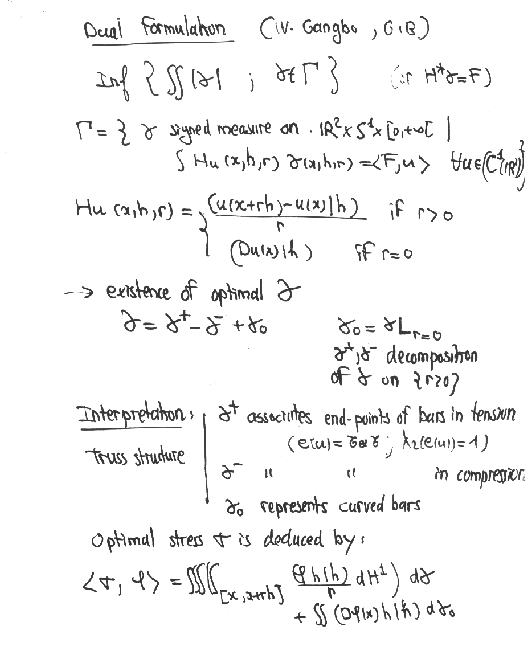 Dual Formulation (W. Gangbo, G.B)
Inf { ∬|γ| ; γ∈Γ } (ie H*γ=F)
Γ = { γ signed measure on . IR²×S¹×[0,+∞[ |
∫ Hu(x,h,r) γ(x,h,r) = <F,u> ∀u∈(C¹(IR²)) }
Hu(x,h,r) = { (u(x+rh)-u(x)|h) / r if r>0
(Du(x)|h) if r=0
--> existence of optimal γ
γ = γ⁺ - γ⁻ + γ₀ γ₀ = γ L r=0
γ⁺,γ⁻ decomposition
of γ on {r>0}
Interpretation: γ⁺ associates end-points of bars in tension
Truss structure (e(u) = σ⊗σ ; λ₂(e(u))=1)
γ⁻ " " in compression
γ₀ represents curved bars
Optimal stress σ is deduced by:
<σ, φ> = ∭( ∫[x,x+rh] (φh|h)/r dH¹ ) dγ
+ ∬ (Dφ(x)h|h) dγ₀